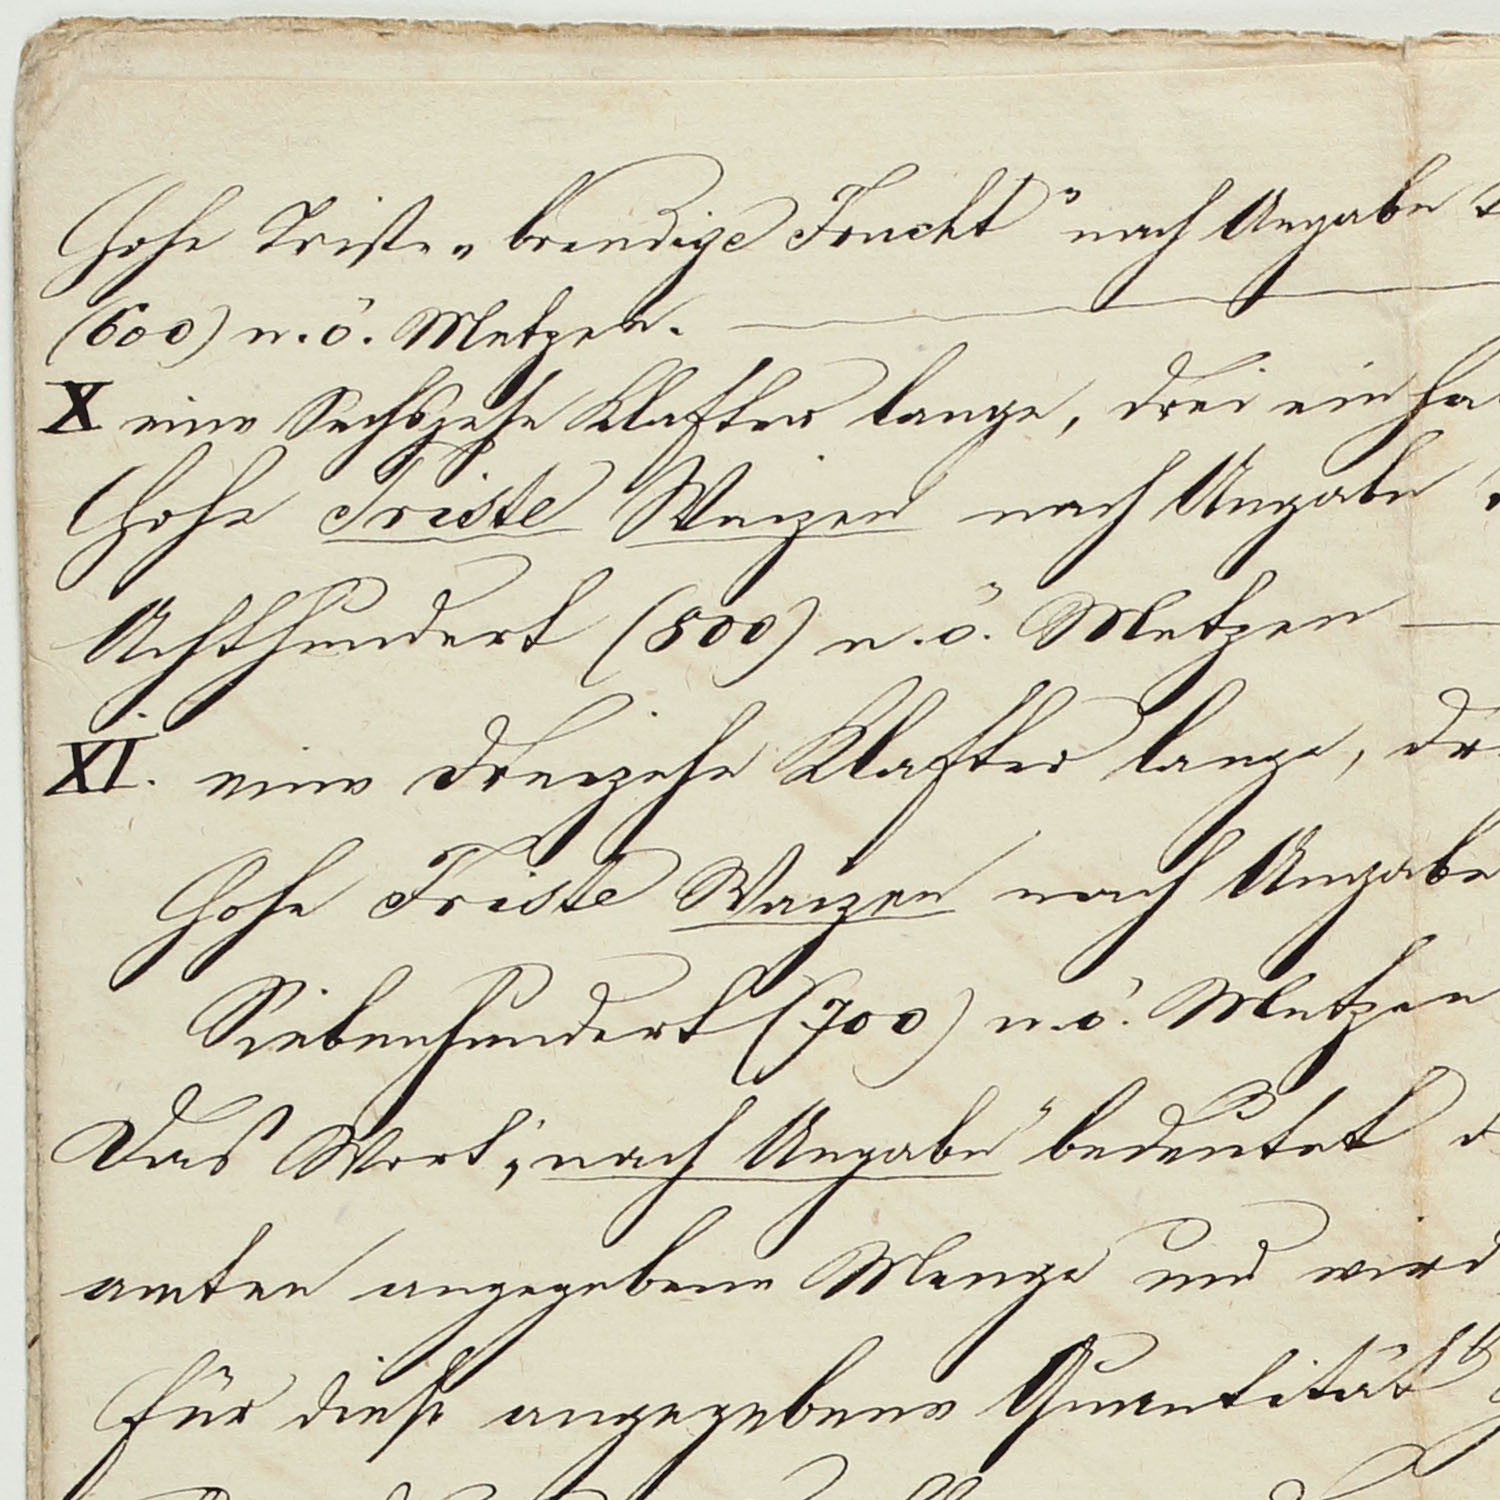 hohe Triste „brandige Frucht" nach Angabe
(600) n. ö. Metzen.
X eine Sechszehn Klafter lange, drei ein ha
hohe Triste Waizen nach Angabe
Achthundert (800) n. ö. Metzen
XI. eine dreizehn Klafter lange, dr
hohe Triste Waizen nach Angabe
Siebenhundert (700) n. ö. Metzen
Das Wort „nach Angabe" bedeutet d
amten angegebene Menge und wird
für diese angegebene Quantität